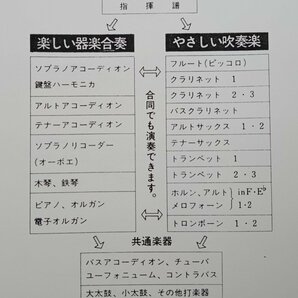 指揮譜
楽しい器楽合奏
ソプラノアコーディオン
鍵盤ハーモニカ
アルトアコーディオン
テナーアコーディオン
ソプラノリコーダー
(オーボエ)
木琴、鉄琴
ピアノ、オルガン
電子オルガン
合同でも演奏できます。
やさしい吹奏楽
フルート(ピッコロ)
クラリネット 1
クラリネット 2・3
バスクラリネット
アルトサックス 1・2
テナーサックス
トランペット 1
トランペット 2・3
ホルン、アルト
メロフォーン
}inF・E♭
1・2
トロンボーン 1・2
共通楽器
バスアコーディオン、チューバ
ユーフォニューム、コントラバス
大太鼓、小太鼓、その他打楽器